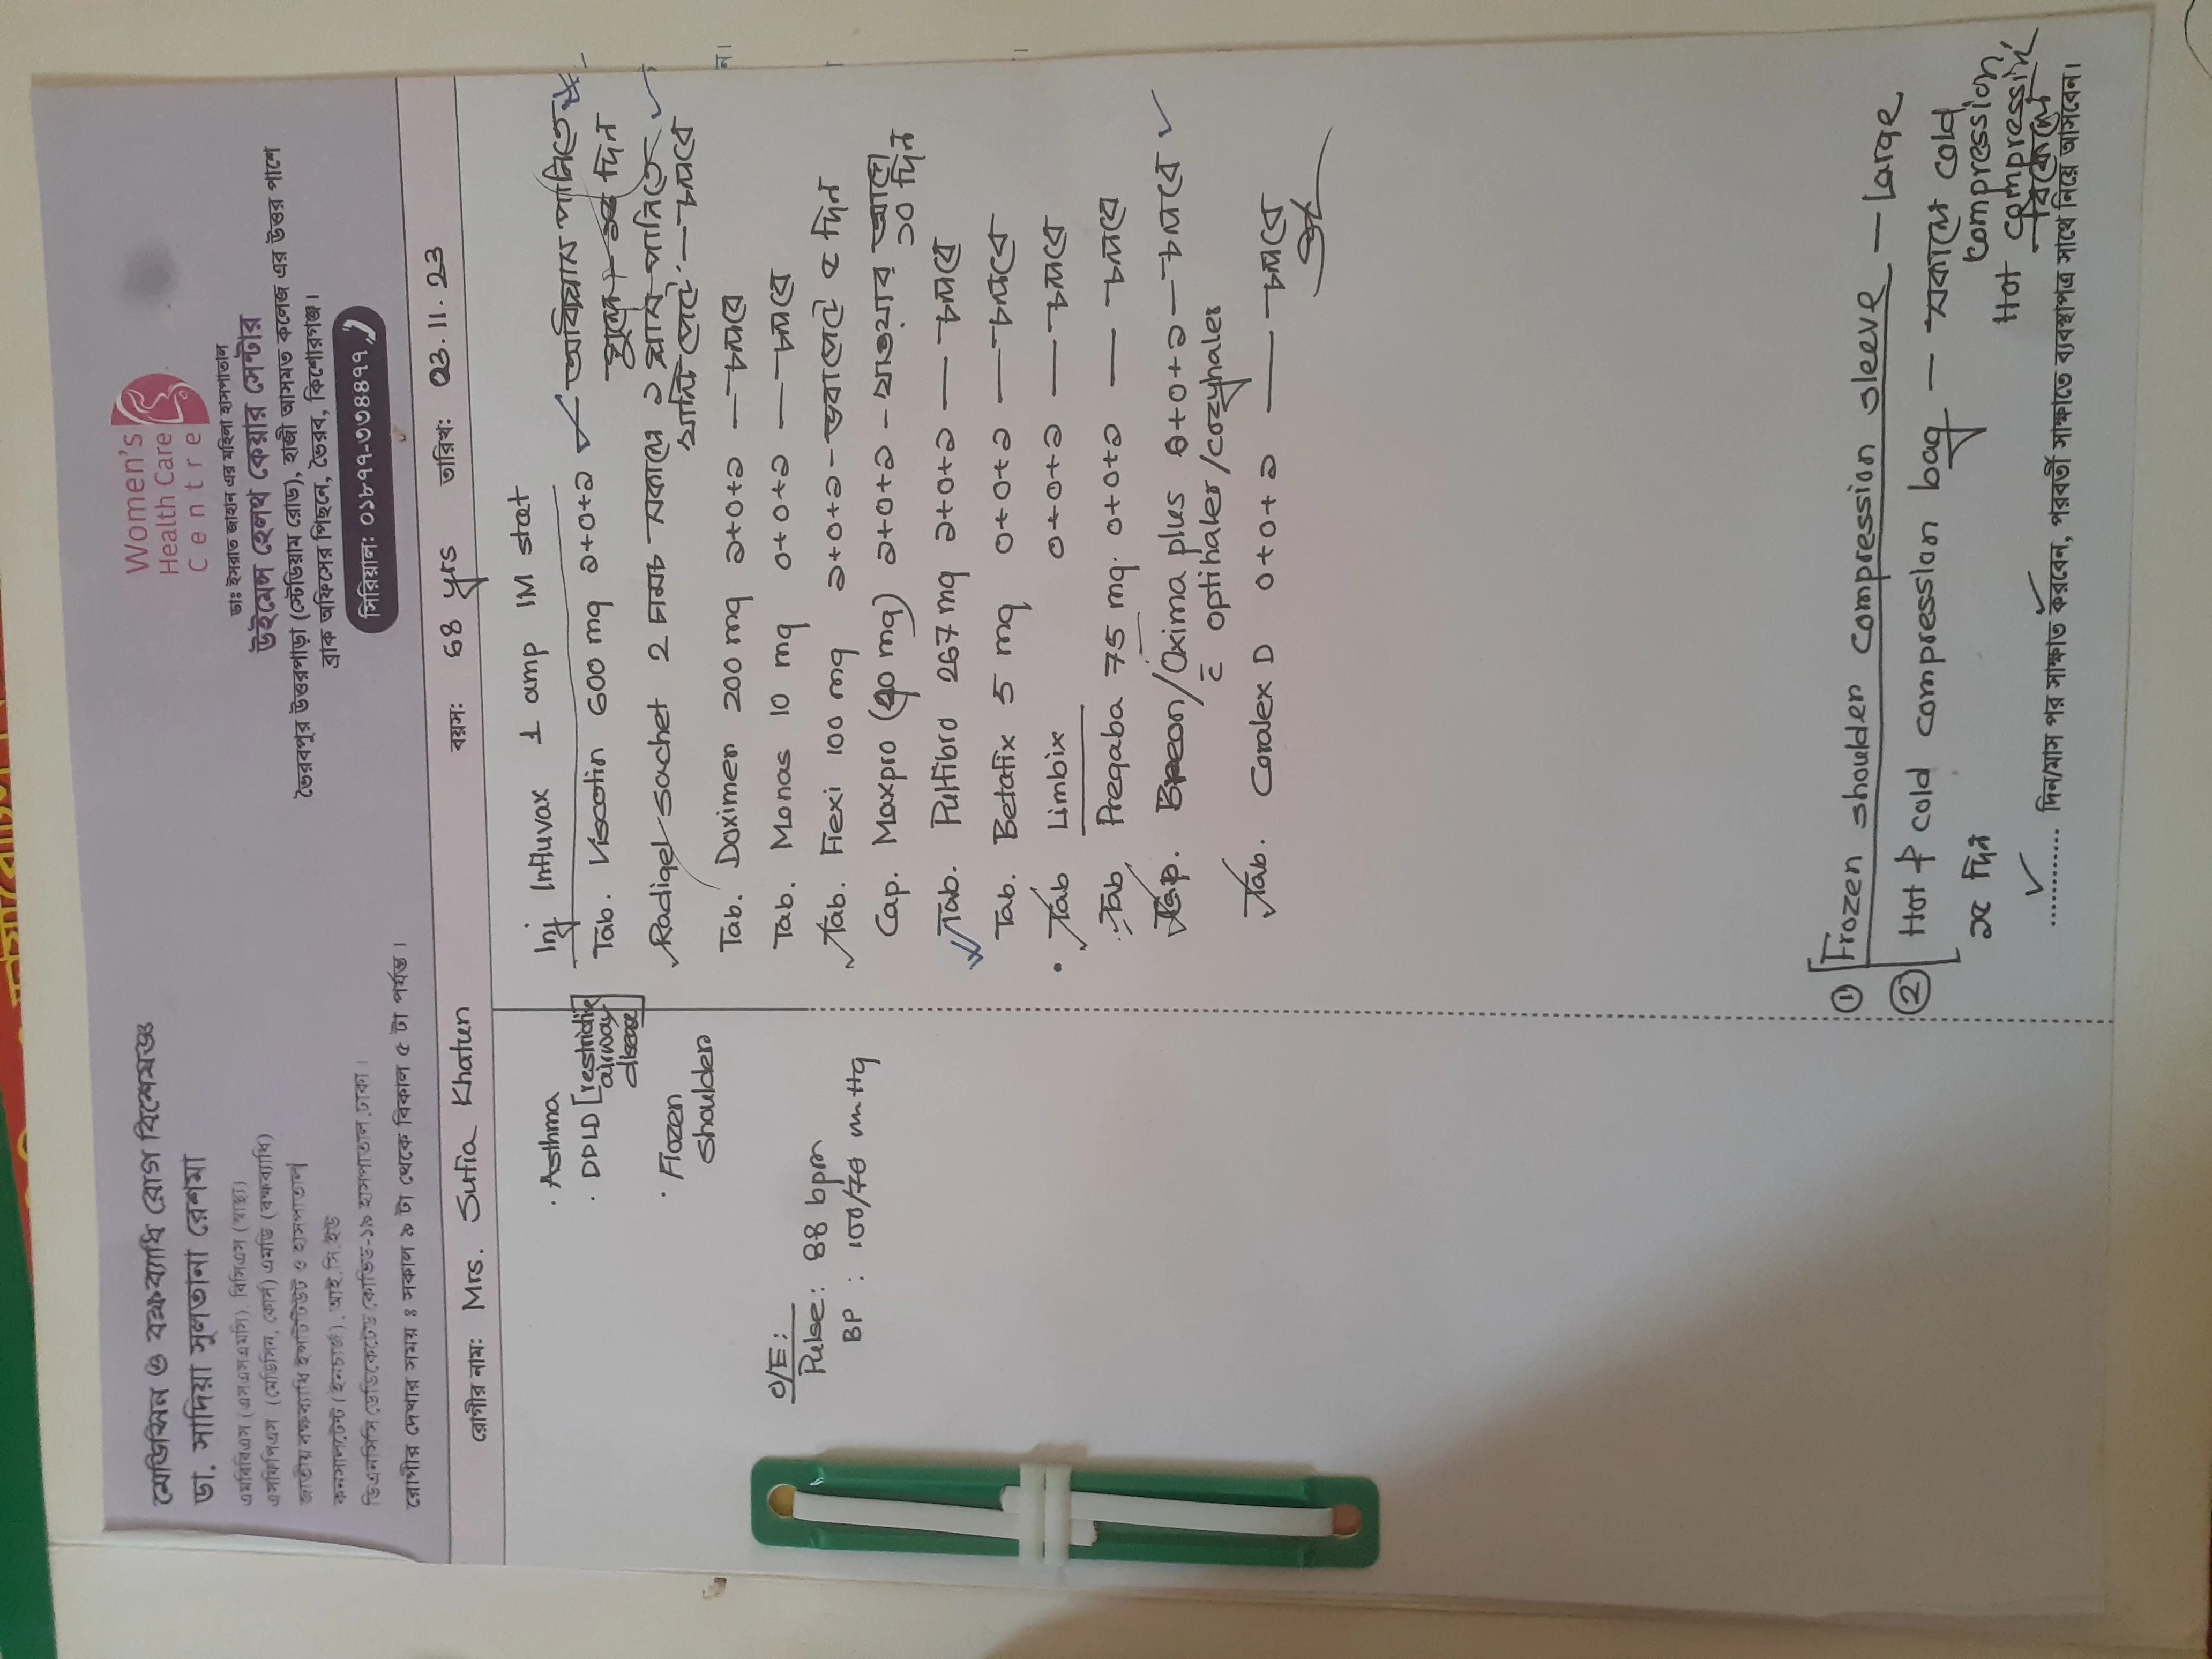 মেডিসিন ও বক্ষব্যাধি রোগ বিশেষজ্ঞ
ডা. সাদিয়া সুলতানা রেশমা
এমবিবিএস (এসএসএমসি), বিসিএস (স্বাস্থ্য)
এফসিপিএস (মেডিসিন, কোর্স) এমডি (বক্ষব্যাধি)
জাতীয় বক্ষব্যাধি ইন্সটিটিউট ও হাসপাতাল
কনসালটেন্ট (ইনচার্জ), আই.সি.ইউ
ডিএনসিসি ডেডিকেটেড কোভিড-১৯ হাসপাতাল, ঢাকা।
রোগীর দেখার সময় ঃ সকাল ৯ টা থেকে বিকাল ৫ টা পর্যন্ত।
Women's
Health Care
Centre
ডাঃ ইসরাত জাহান এর মহিলা হাসপাতাল
উইমেন্স হেলথ কেয়ার সেন্টার
ভৈরবপুর উত্তরপাড়া (স্টেডিয়াম রোড), হাজী আসমত কলেজ এর উত্তর পাশে
ব্রাক অফিসের পিছনে, ভৈরব, কিশোরগঞ্জ।
সিরিয়াল: ০১৮৭৭-৭৩৪৪৭৭
রোগীর নাম: Mrs. Sufia Khatun বয়স: 68 yrs তারিখ: 03.11.23
· Asthma
· DPLD [restrictive
airway
disease]
· Flozen
shoulder
O/E:
Pulse: 88 bpm
BP : 100/70 mmHg
Inj Influvax 1 amp IM stat
Tab. Viscotin 600 mg ১+০+১ —
Radigel sachet 2 চামচ সকালে ১ গ্লাস পানিতে
খালি পেটে — চলবে
Tab. Doximer 200 mg ১+০+১ — চলবে
Tab. Monas 10 mg ০+০+১ — চলবে
Tab. Flexi 100 mg ১+০+১ – ভরাপেটে ৫ দিন
Cap. Maxpro (40 mg) ১+০+১ – খাওয়ার আগে
১০ দিন
Tab. Pulfibro 267 mg ১+০+১ — চলবে
Tab. Betafix 5 mg ০+০+১ — চলবে
Tab Limbix ০+০+১ — চলবে
Tab Pregaba 75 mg. ০+০+১ — চলবে
Cap. Breon/Oxima plus ১+০+১ — চলবে
c̄ optihaler/cozyhaler
Tab. Coralex D ০+০+১ — চলবে
① [Frozen shoulder compression sleeve – Large
② [Hot & cold compression bag – সকালে cold
compression,
Hot compression
বিকালে
.......... দিন/মাস পর সাক্ষাত করবেন, পরবর্তী সাক্ষাতে ব্যবস্থাপত্র সাথে নিয়ে আসবেন।